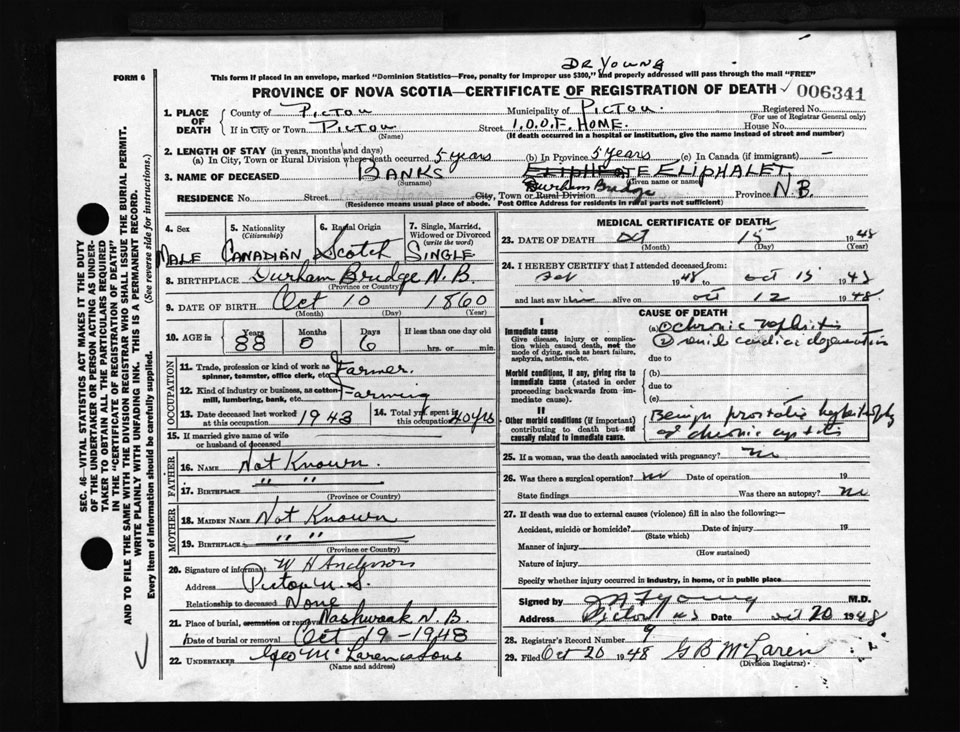 DR YOUNG
FORM 6
This form if placed in an envelope, marked "Dominion Statistics—Free, penalty for improper use $300," and properly addressed will pass through the mail "FREE"
PROVINCE OF NOVA SCOTIA—CERTIFICATE OF REGISTRATION OF DEATH 006341
1. PLACE OF DEATH
County of Pictou Municipality of Pictou Registered No.
(For use of Registrar General only)
If in City or Town Pictou Street I.O.O.F. HOME. House No.
(Name) (If death occurred in a hospital or institution, give the name instead of street and number)
2. LENGTH OF STAY (in years, months and days)
(a) In City, Town or Rural Division where death occurred 5 years (b) In Province 5 years (c) In Canada (if immigrant) —
3. NAME OF DECEASED BANKS ELIPHALET
(Surname) (Given name or names)
RESIDENCE No. Street City, Town or Rural Division Durham Bridge Province N.B.
(Residence means usual place of abode. Post Office Address for residents in rural parts not sufficient)
4. Sex 5. Nationality (Citizenship) 6. Racial Origin 7. Single, Married, Widowed or Divorced (write the word)
MALE CANADIAN Scotch SINGLE
8. BIRTHPLACE Durham Bridge N.B.
(Province or Country)
9. DATE OF BIRTH Oct 10 1860
(Month) (Day) (Year)
10. AGE in Years Months Days If less than one day old
88 0 6 hrs. or min.
OCCUPATION
11. Trade, profession or kind of work as spinner, teamster, office clerk, etc. Farmer.
12. Kind of industry or business, as cotton mill, lumbering, bank, etc. Farming
13. Date deceased last worked at this occupation 1943 14. Total yrs. spent in this occupation 40 yrs
15. If married give name of wife or husband of deceased
FATHER
16. NAME Not Known.
17. BIRTHPLACE " "
(Province or Country)
MOTHER
18. MAIDEN NAME Not Known
19. BIRTHPLACE " "
(Province or Country)
20. Signature of informant W H Anderson
Address Pictou N.S.
Relationship to deceased None
21. Place of burial, cremation or removal Nashwaak N.B.
Date of burial or removal Oct 19-1948
22. UNDERTAKER Geo McLaren & Sons
(Name and address)
MEDICAL CERTIFICATE OF DEATH
23. DATE OF DEATH Oct 15 1948
(Month) (Day)
24. I HEREBY CERTIFY that I attended deceased from:
1948 to Oct 15 1948
and last saw him alive on Oct 12 1948.
CAUSE OF DEATH
I
Immediate cause
Give disease, injury or complication which caused death, not the mode of dying, such as heart failure, asphyxia, asthenia, etc.
(a) ① chronic nephritis
② senile cardiac degeneration
due to
Morbid conditions, if any, giving rise to immediate cause (stated in order proceeding backwards from immediate cause).
(b)
due to
(c)
II
Other morbid conditions (if important) contributing to death but not causally related to immediate cause.
Benign prostatic hypertrophy
& chronic cystitis
25. If a woman, was the death associated with pregnancy?
26. Was there a surgical operation? no Date of operation 19
State findings Was there an autopsy? no
27. If death was due to external causes (violence) fill in also the following:—
Accident, suicide or homicide? Date of injury 19
(State which)
Manner of injury
(How sustained)
Nature of injury
Specify whether injury occurred in industry, in home, or in public place
Signed by Young M.D.
Address Pictou NS Date Oct 20 1948
28. Registrar's Record Number 9
29. Filed Oct 20 1948 G B McLaren
(Division Registrar)
SEC. 46—VITAL STATISTICS ACT MAKES IT THE DUTY
OF THE UNDERTAKER OR PERSON ACTING AS UNDER-
TAKER TO OBTAIN ALL THE PARTICULARS REQUIRED
IN THE "CERTIFICATE OF REGISTRATION OF DEATH"
AND TO FILE THE SAME WITH THE DIVISION REGISTRAR WHO SHALL ISSUE THE BURIAL PERMIT.
WRITE PLAINLY WITH UNFADING INK. THIS IS A PERMANENT RECORD.
Every item of information should be carefully supplied. (See reverse side for instructions.)